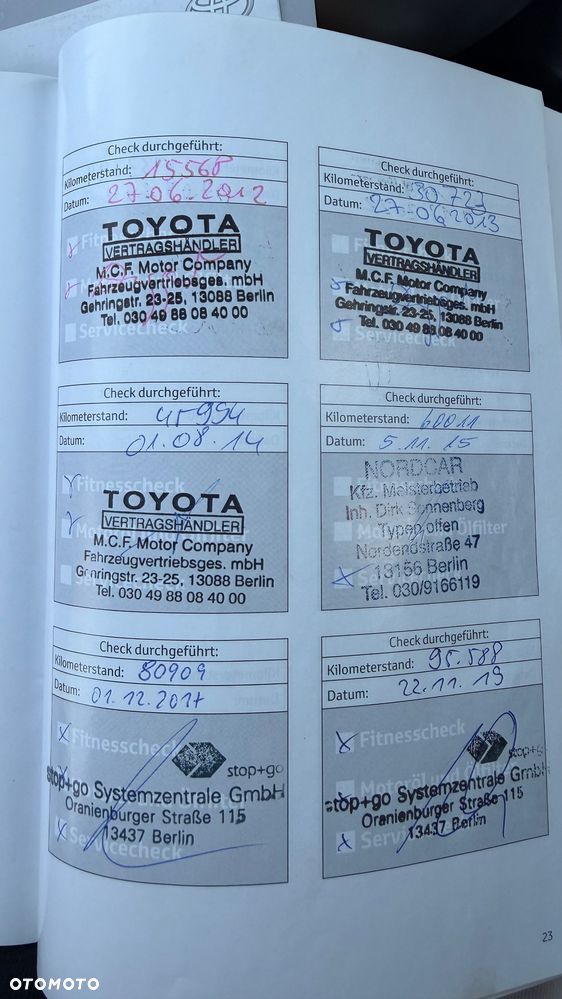 Check durchgeführt:
Kilometerstand: 15568
Datum: 27.06.2012
Fitnesscheck
TOYOTA
VERTRAGSHÄNDLER
M.C.F. Motor Company
Fahrzeugvertriebsges. mbH
Gehringstr. 23-25, 13088 Berlin
Tel. 030 49 88 08 40 00
Servicecheck
Check durchgeführt:
Kilometerstand: 30.727
Datum: 27-06 2013
TOYOTA
VERTRAGSHÄNDLER
M.C.F. Motor Company
Fahrzeugvertriebsges. mbH
Gehringstr. 23-25, 13088 Berlin
Tel. 030 49 88 08 40 00
Servicecheck
Check durchgeführt:
Kilometerstand: 45994
Datum: 01.08.14
Fitnesscheck
TOYOTA
VERTRAGSHÄNDLER
M.C.F. Motor Company
Fahrzeugvertriebsges. mbH
Gehringstr. 23-25, 13088 Berlin
Tel. 030 49 88 08 40 00
Check durchgeführt:
Kilometerstand: 60011
Datum: 5.11.15
NORDCAR
Kfz. Meisterbetrieb
Inh. Dirk Sonnenberg
Typenoffen
Nordendstraße 47
13156 Berlin
Tel. 030/9166119
Check durchgeführt:
Kilometerstand: 80909
Datum: 01.12.2017
Fitnesscheck
stop+go
stop+go Systemzentrale GmbH
Oranienburger Straße 115
13437 Berlin
Servicecheck
Check durchgeführt:
Kilometerstand: 95.588
Datum: 22.11.19
Fitnesscheck
stop+go
stop+go Systemzentrale GmbH
Oranienburger Straße 115
13437 Berlin
23
OTOMOTO